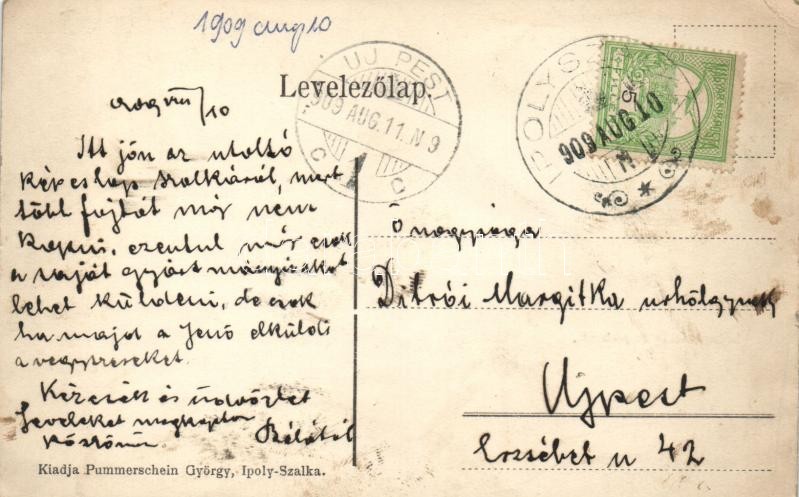 1909 aug 10
Levelezőlap.
UJ PEST
909 AUG. 11. N 9
IPOLYSZ
909 AUG 10
909 VIII/10
Itt jön az utolsó
képeslap Szalkáról, mert
több fajtát már nem
kapni, ezentul már csak
a saját gyártmányúakat
lehet küldeni, de csak
ha majd a Jenő elküldi
a vegyszereket.
Kézcsók és üdvözlet
leveleket megkaptam
köszönöm Bélától
Kiadja Pummerschein György, Ipoly-Szalka.
Ő nagysága
Ditrói Margitka urhölgynek
Ujpest
Erzsébet u 42